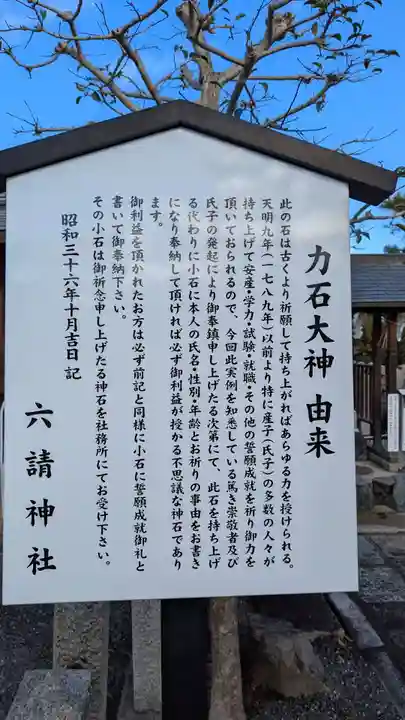 力石大神 由来
此の石は古くより祈願して持ち上がればあらゆる力を授けられる。
天明九年(一七八九年)以前より特に産子(氏子)の多数の人々が
持ち上げて安産・学力・試験・就職・その他の誓願成就を祈り御力を
頂いておられるので、今回此実例を知悉している篤き崇敬者及び
氏子の発起により御奉鎮申し上げたる次第にて、此石を持ち上げ
る代わりに小石に本人の氏名・性別・年齢とお祈りの事由をお書き
になり奉納して頂ければ必ず御利益が授かる不思議な神石であり
ます。
御利益を頂かれたお方は必ず前記と同様に小石に誓願成就御礼と
書いて御奉納下さい。
その小石は御祈念申し上げたる神石を社務所にてお受け下さい。
昭和三十六年十月吉日 記
六請神社